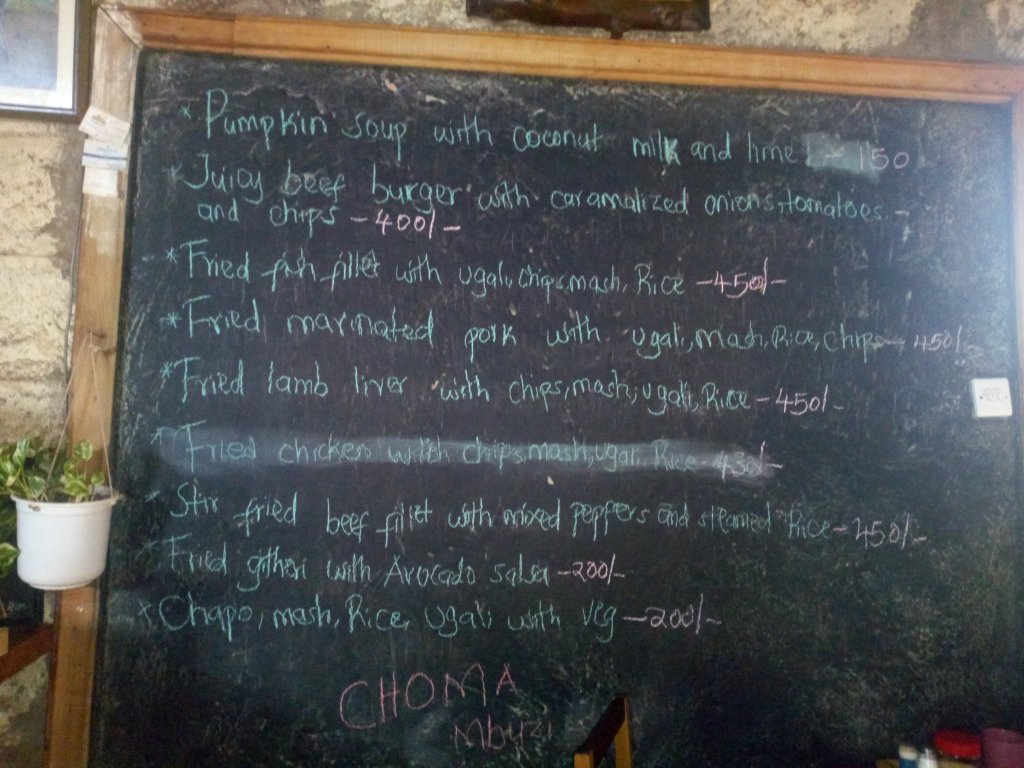 * Pumpkin soup with coconut milk and lime - 150
* Juicy beef burger with caramalized onions, tomatoes -
and chips - 400/-
* Fried fish fillet with ugali, chips, mash, Rice - 450/-
* Fried marinated pork with ugali, mash, Rice, chips - 450/-
* Fried lamb liver with chips, mash, ugali, Rice - 450/-
* Fried chicken with chips, mash, ugali Rice 450/-
* Stir fried beef fillet with mixed peppers and steamed Rice - 450/-
* Fried githeri with Avocado salsa - 200/-
* Chapo, mash, Rice, Ugali with veg - 200/-
CHOMA
Mbuzi